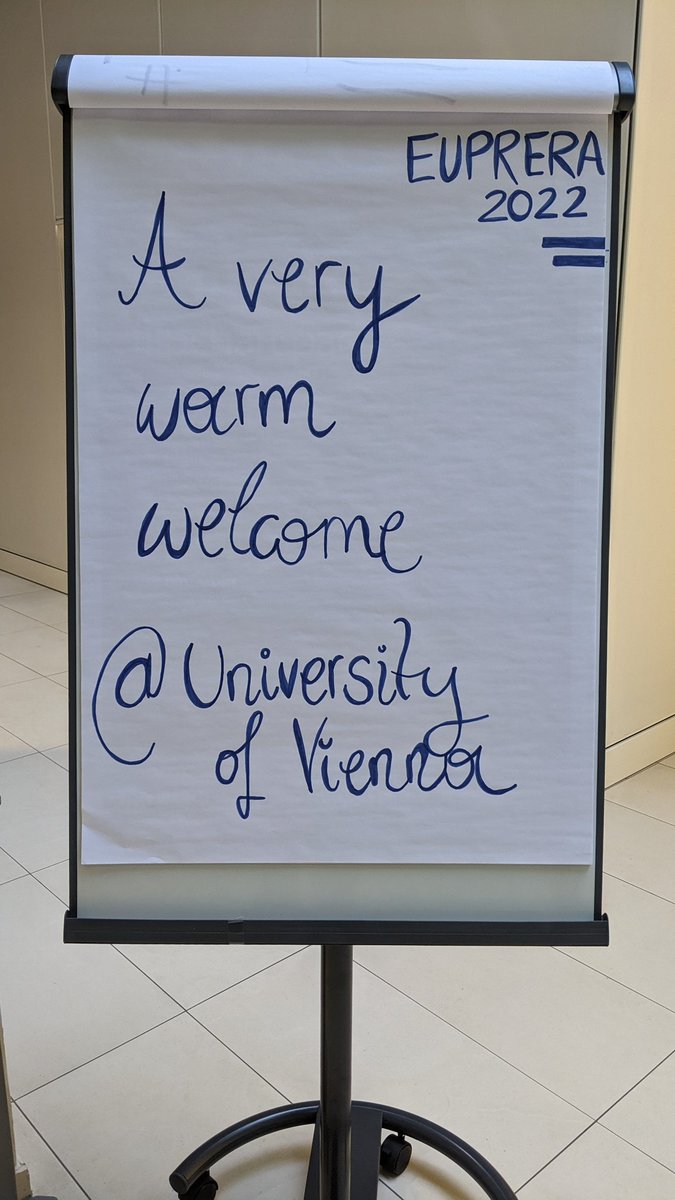 EUPRERA
2022
A very
warm
welcome
@ University
of Vienna